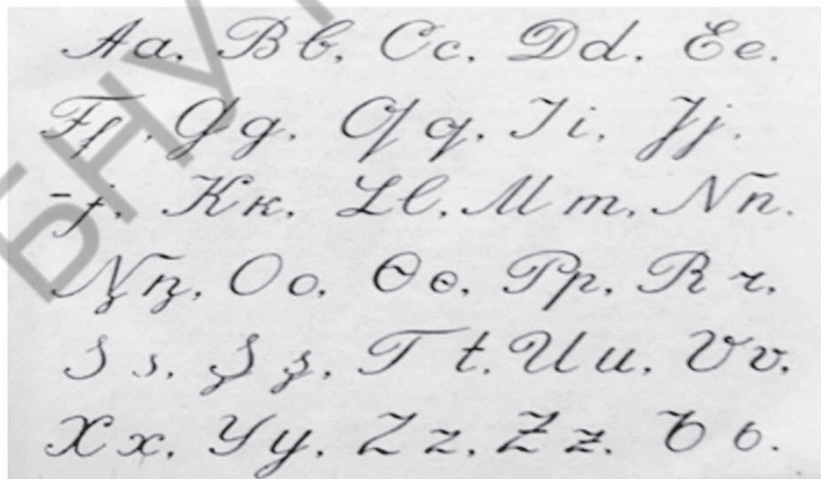 Aa, Bʙ, Cc, Dd, Ee.
Ff, Gg, Ƣƣ, Ii, Jj.
-j, Kк, Ll, Mm, Nn.
Ņņ, Oo, Ɵɵ, Pp, Rr,
Ss, Şş, Tt, Uu, Vv,
Xx, Yy, Zz, Ƶƶ, Ьь.
БНУ